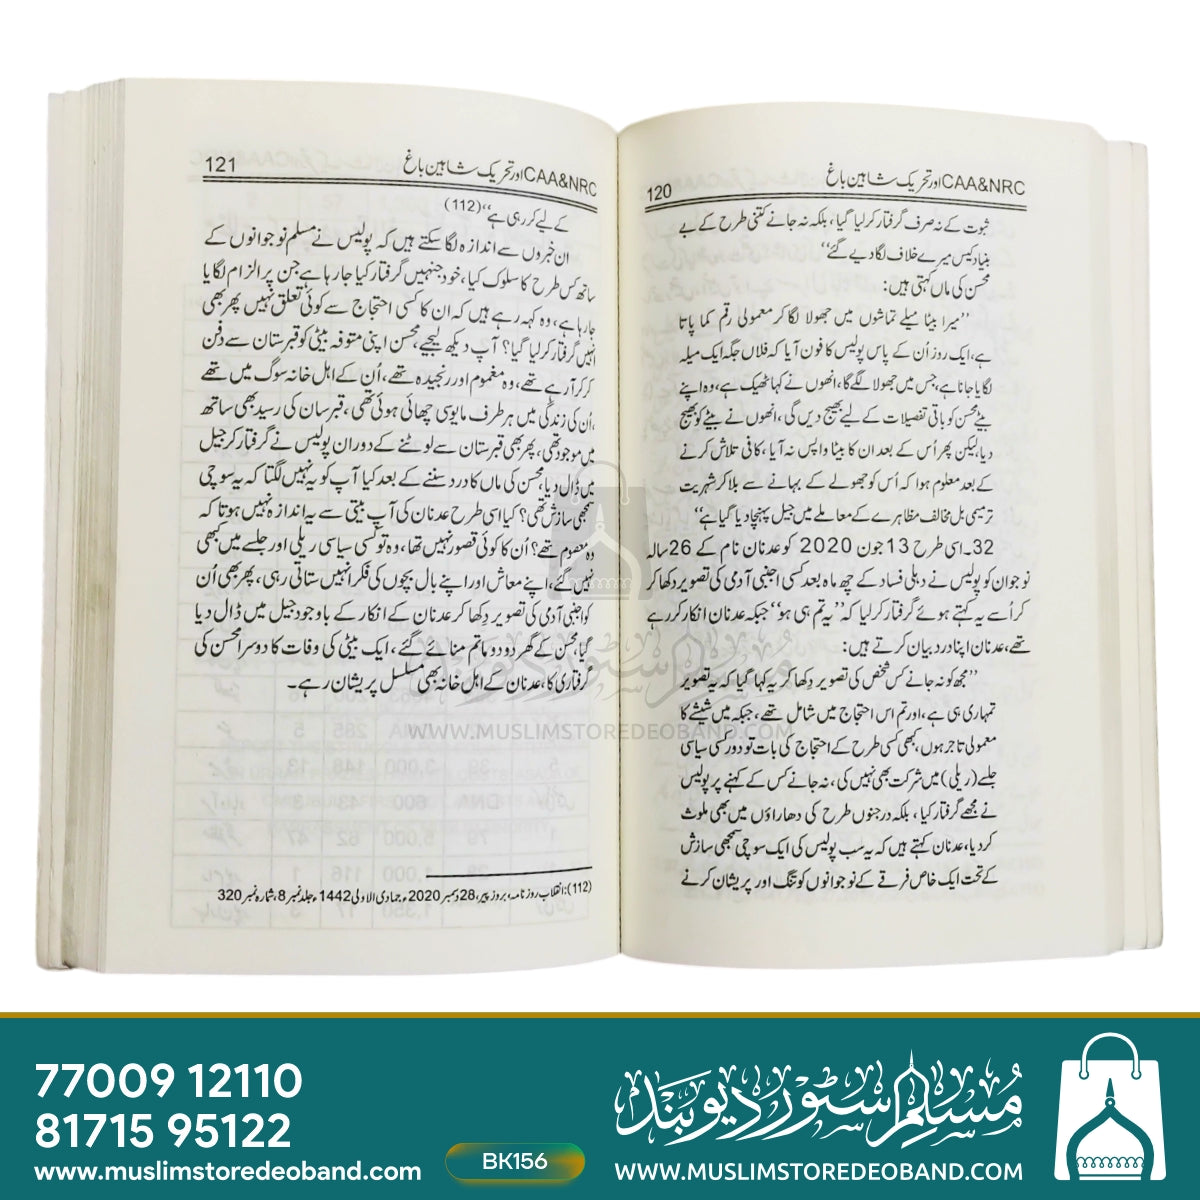 120 CAA&NRC اور تحریک شاہین باغ
ثبوت کے نہ صرف گرفتار کرلیا گیا، بلکہ نہ جانے کتنی طرح کے بے
بنیاد کیس میرے خلاف لگادیے گئے‘‘
محسن کی ماں کہتی ہیں:
’’میرا بیٹا میلے تماشوں میں جھولا لگا کر معمولی رقم کما پاتا
ہے، ایک روز اُن کے پاس پولیس کا فون آیا کہ فلاں جگہ ایک میلہ
لگایا جانا ہے، جس میں جھولا لگے گا، انھوں نے کہا ٹھیک ہے، وہ اپنے
بیٹے محسن کو باقی تفصیلات کے لیے بھیج دیں گی، انھوں نے بیٹے کو بھیج
دیا، لیکن پھر اُس کے بعد ان کا بیٹا واپس نہ آیا، کافی تلاش کرنے
کے بعد معلوم ہوا کہ اُس کو جھولے کے بہانے سے بلا کر شہریت
ترمیمی بل مخالف مظاہرے کے معاملے میں جیل پہنچا دیا گیا ہے‘‘
32۔ اسی طرح 13 جون 2020 کو عدنان نام کے 26 سالہ
نوجوان کو پولیس نے دہلی فساد کے چھ ماہ بعد کسی اجنبی آدمی کی تصویر دکھا کر
کر اُسے یہ کہتے ہوئے گرفتار کرلیا کہ ’’یہ تم ہی ہو‘‘ جبکہ عدنان انکار کر رہے
تھے، عدنان اپنا درد بیان کرتے ہیں:
’’مجھ کو نہ جانے کس شخص کی تصویر دکھا کر یہ کہا گیا کہ یہ تصویر
تمہاری ہی ہے، اور تم اس احتجاج میں شامل تھے، جبکہ میں شیشے کا
معمولی تاجر ہوں، کبھی کسی طرح کے احتجاج کی بات تو دور کسی سیاسی
جلسے (ریلی) میں شرکت بھی نہیں کی، نہ جانے کس کے کہنے پر پولیس
نے مجھے گرفتار کیا، بلکہ درجنوں طرح کی دھاراؤں میں بھی ملوث
کردیا، عدنان کہتے ہیں کہ یہ سب پولیس کی ایک سوچی سمجھی سازش
کے تحت ایک خاص فرقے کے نوجوانوں کو تنگ اور پریشان کرنے
121 CAA&NRC اور تحریک شاہین باغ
کے لیے کر رہی ہے‘‘ (112)
ان خبروں سے اندازہ لگا سکتے ہیں کہ پولیس نے مسلم نوجوانوں کے
ساتھ کس طرح کا سلوک کیا، خود جنہیں گرفتار کیا جا رہا ہے جن پر الزام لگایا
جا رہا ہے، وہ کہہ رہے ہیں کہ ان کا کسی احتجاج سے کوئی تعلق نہیں پھر بھی
انہیں گرفتار کرلیا گیا؟ آپ دیکھ لیجیے، محسن اپنی متوفہ بیٹی کو قبرستان سے دفن
کر کر آ رہے تھے، وہ مغموم اور رنجیدہ تھے، اُن کے اہل خانہ سوگ میں تھے
اُن کی زندگی میں ہر طرف مایوسی چھائی ہوئی تھی، قبرستان کی رسید بھی ساتھ
میں موجود تھی، پھر بھی قبرستان سے لوٹنے کے دوران پولیس نے گرفتار کر جیل
میں ڈال دیا، محسن کی ماں کا درد سننے کے بعد کیا آپ کو یہ نہیں لگتا کہ یہ سوچی
سمجھی سازش تھی؟ کیا اسی طرح عدنان کی آپ بیتی سے یہ اندازہ نہیں ہوتا کہ
وہ معصوم تھے؟ اُن کا کوئی قصور نہیں تھا، وہ تو کسی سیاسی ریلی اور جلسے میں بھی
نہیں گئے، اپنے معاش اور اپنے بال بچوں کی فکر انہیں ستاتی رہی، پھر بھی اُن
کو اجنبی آدمی کی تصویر دِکھا کر عدنان کے انکار کے باوجود جیل میں ڈال دیا
گیا، محسن کے گھر دو دو ماتم منائے گئے، ایک بیٹی کی وفات کا دوسرا محسن کی
گرفتاری کا، عدنان کے اہل خانہ بھی مسلسل پریشان رہے۔
(112): انقلاب روزنامہ، بروز پیر، 28 دسمبر 2020ء جمادی الاولی 1442ء جلد نمبر 8، شمارہ نمبر 320
مسلم سٹور دیوبند
WWW.MUSLIMSTOREDEOBAND.COM
77009 12110
81715 95122
www.muslimstoredeoband.com
BK156
مسلم سٹور دیوبند
WWW.MUSLIMSTOREDEOBAND.COM